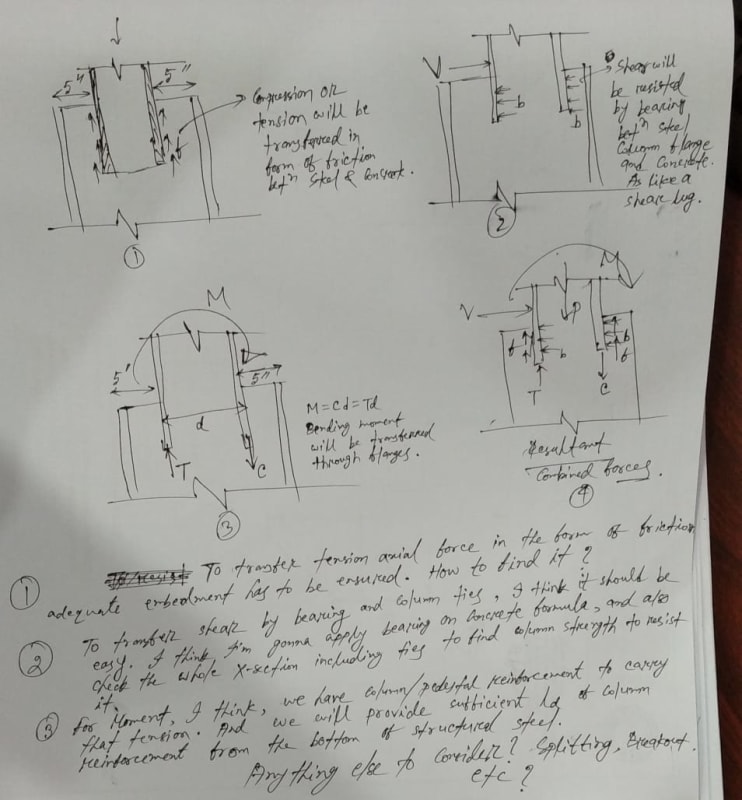 5"
5"
Compression or
tension will be
transferred in
form of friction
betn steel & concrete.
1
V
b
b
Shear will
be resisted
by bearing
betn steel
column flange
and concrete.
As like a
shear lug.
2
M
5'
5"
d
T
C
M = Cd = Td
Bending moment
will be transferred
through flanges.
3
M
V
P
f
b
b
f
T
C
Resultant
Combined forces.
4
1 To transfer tension axial force in the form of friction
adequate embedment has to be ensured. How to find it?
2 To transfer shear by bearing and column ties, I think it should be
easy. I think I'm gonna apply bearing on concrete formula, and also
check the whole X-section including ties to find column strength to resist
it.
3 For Moment, I think, we have column/pedestal reinforcement to carry
that tension. And we will provide sufficient Ld of column
reinforcement from the bottom of structural steel.
Anything else to consider? Splitting, Breakout
etc?